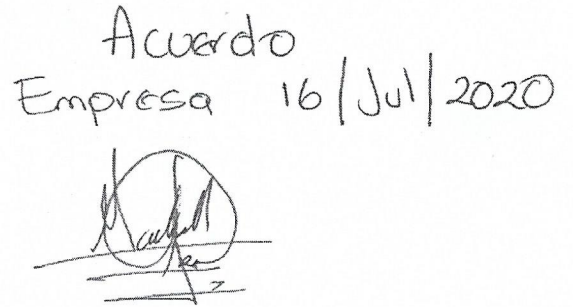 Acuerdo
Empresa 16/Jul/2020